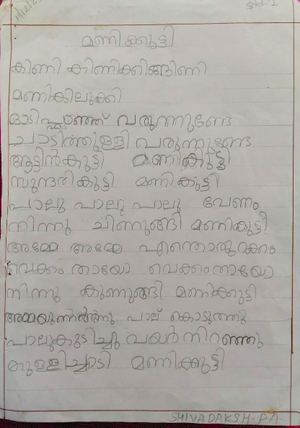 മണിക്കുട്ടി
കിണി കിണിക്കിങ്ങിണി
മണികിലുക്കി
ഓടിപ്പാഞ്ഞ് വരുന്നുണ്ടേ
ചാടിത്തുള്ളി വരുന്നുണ്ടേ
ആട്ടിൻകുട്ടി മണികുട്ടി
സുന്ദരികുട്ടി മണികുട്ടി
പാലു പാലു പാലു വേണം
നിന്നു ചിണുങ്ങി മണികുട്ടി
അമ്മേ അമ്മേ എന്തൊരുറക്കം
വെക്കം തായോ വെക്കംതായോ
നിന്നു കുണുങ്ങി മണിക്കുട്ടി
അമ്മയുണർന്നു പാല് കൊടുത്തു
പാലുകുടിച്ചു വയർനിറഞ്ഞു
തുള്ളിച്ചാടി മണിക്കുട്ടി
SHIVADAKSH. P.A